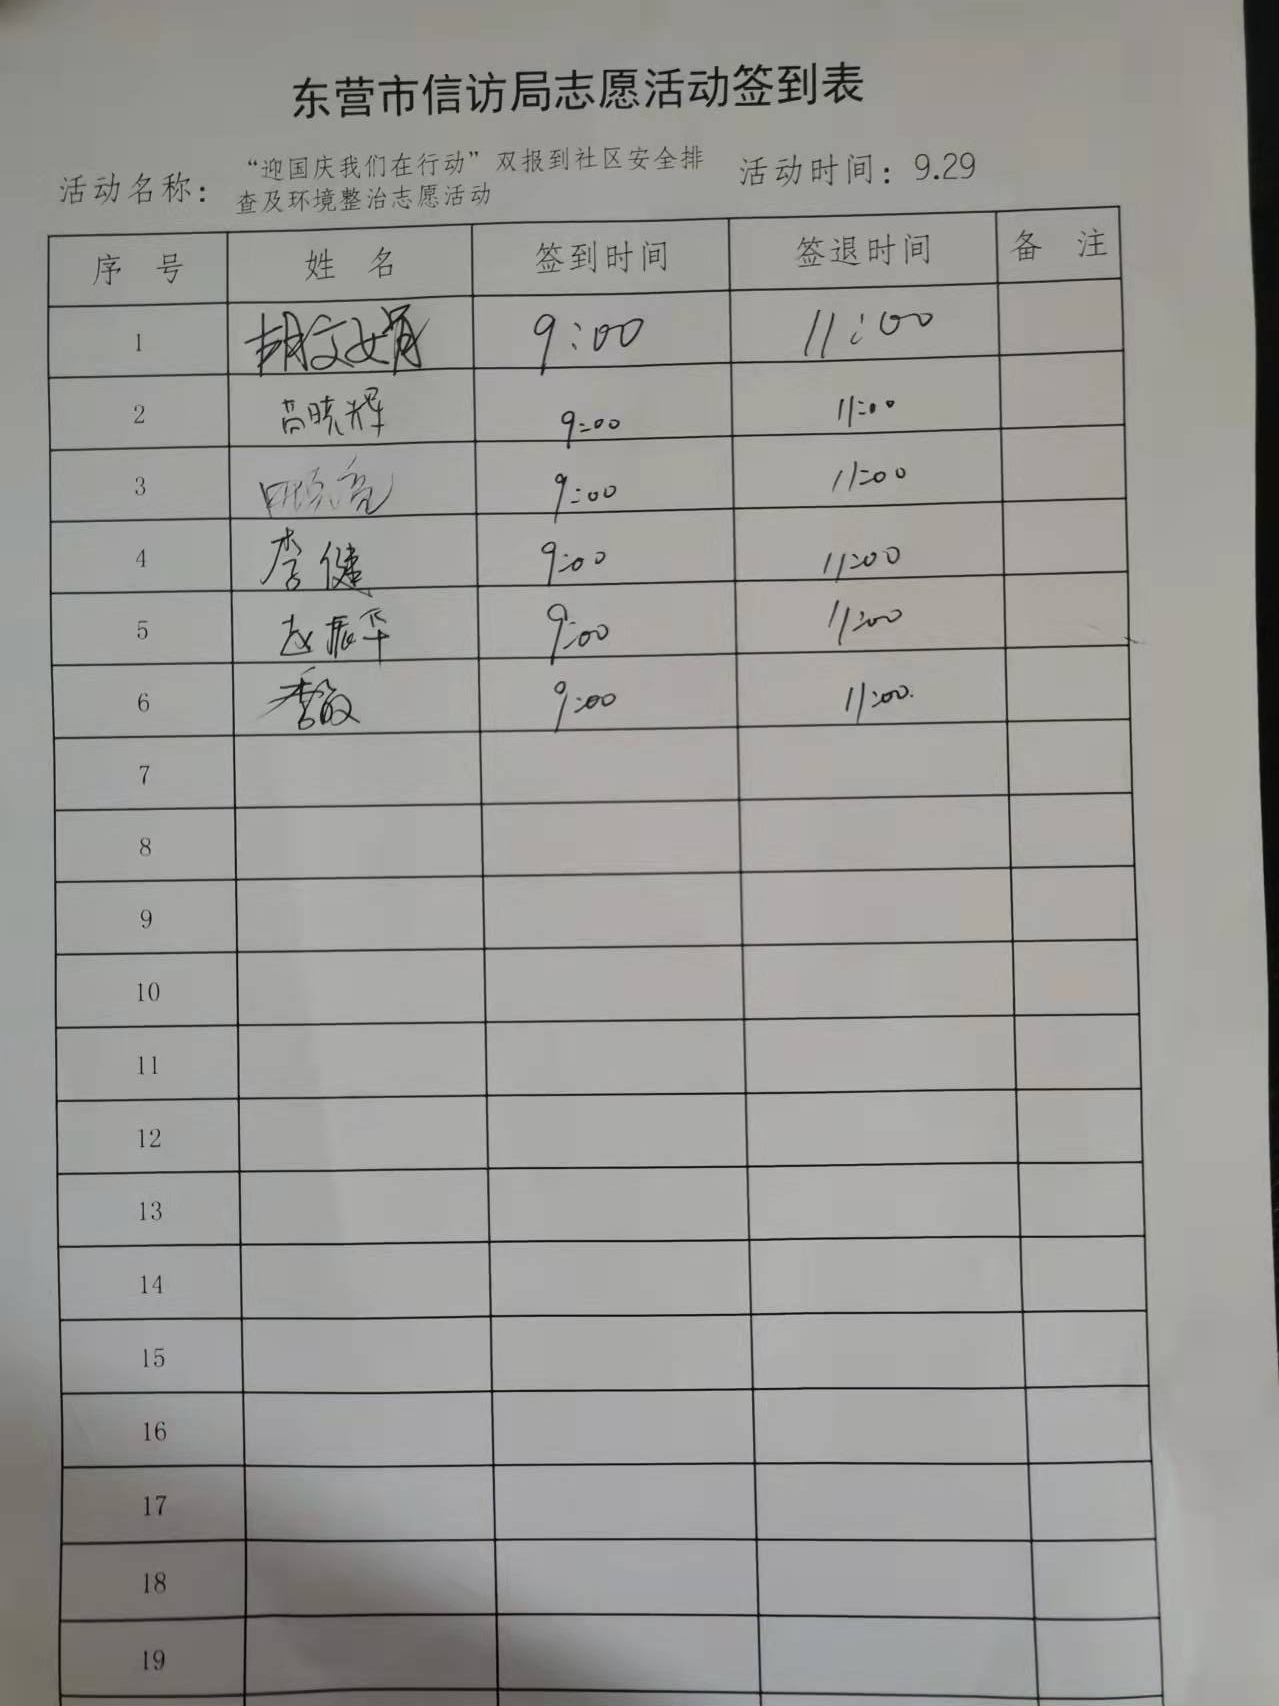 东营市信访局志愿活动签到表
活动名称：“迎国庆我们在行动”双报到社区安全排查及环境整治志愿活动 活动时间：9.29
序 号 姓 名 签到时间 签退时间 备 注
1 胡文娟 9:00 11:00
2 苗晓辉 9:00 11:00
3 9:00 11:00
4 李健 9:00 11:00
5 赵振华 9:00 11:00
6 李敏 9:00 11:00
7
8
9
10
11
12
13
14
15
16
17
18
19